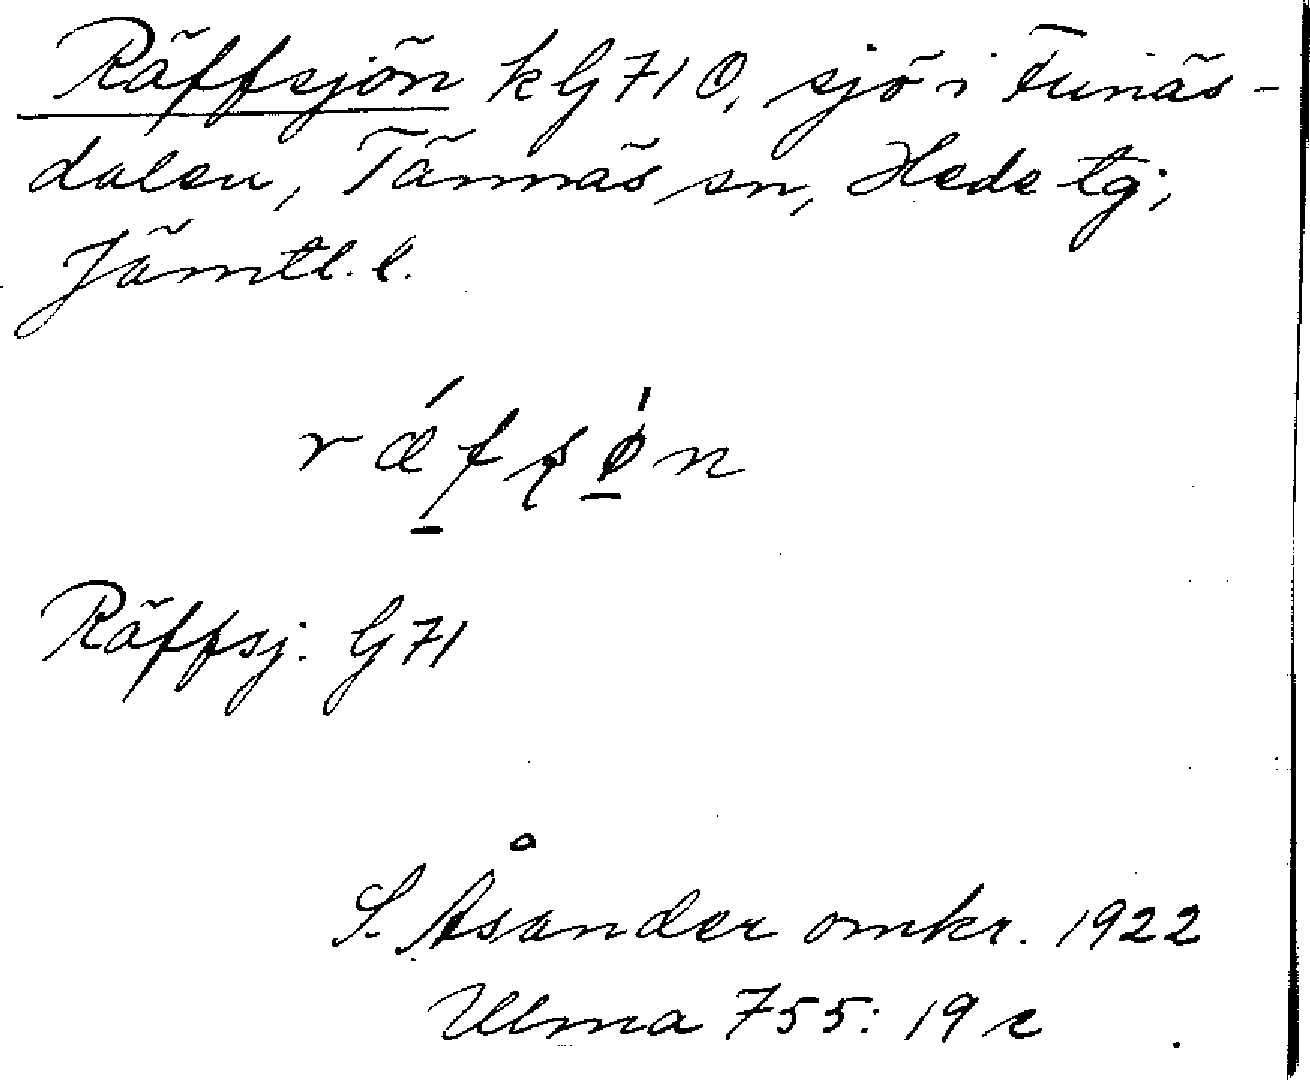 Räffsjön k G71 O, sjö i Funäs-
dalen, Tännäs sn, Hede tg;
Jämtl. l.
ræ̀fʂø̀n
Räffsj. G71
S. Åsander omkr. 1922
Ulma 755: 19 c